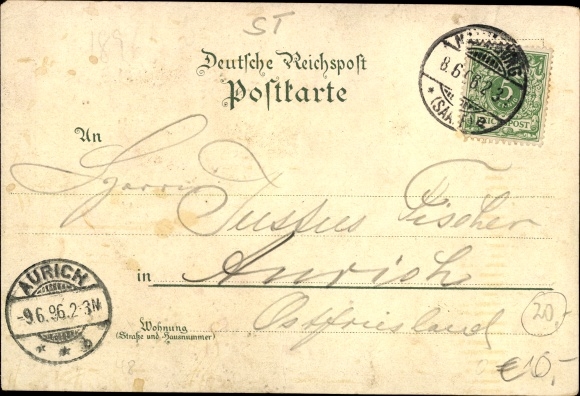 ST
Deutsche Reichspost
Postkarte
8.6.96.2-3
5
REICHSPOST
An
Herrn Justus Fischer
in Aurich
Wohnung
(Straße und Hausnummer)
Ostfriesland
AURICH
-9.6.96.2-3N
* * b
20,-
€10,-